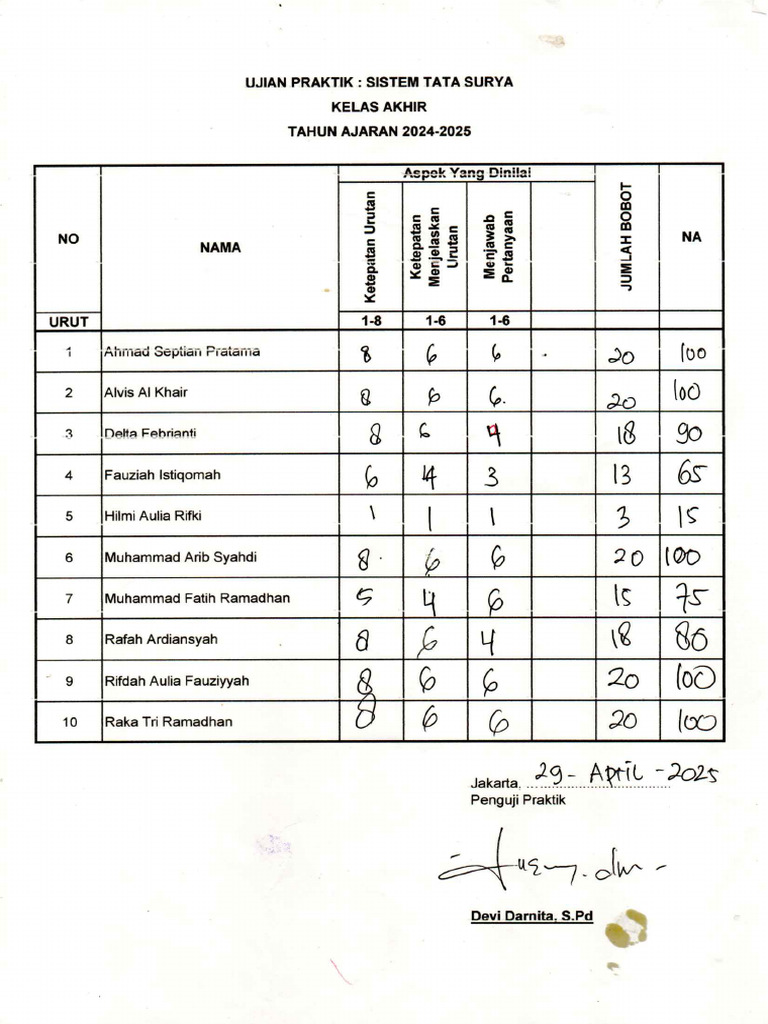 UJIAN PRAKTIK : SISTEM TATA SURYA
KELAS AKHIR
TAHUN AJARAN 2024-2025
NO URUT NAMA Aspek Yang Dinilai JUMLAH BOBOT NA
Ketepatan Urutan Ketepatan Menjelaskan Urutan Menjawab Pertanyaan
1-8 1-6 1-6
1 Ahmad Septian Pratama 8 6 6 20 100
2 Alvis Al Khair 8 6 6. 20 100
3 Delta Febrianti 8 6 4 18 90
4 Fauziah Istiqomah 6 4 3 13 65
5 Hilmi Aulia Rifki 1 1 1 3 15
6 Muhammad Arib Syahdi 8 6 6 20 100
7 Muhammad Fatih Ramadhan 5 4 6 15 75
8 Rafah Ardiansyah 8 6 4 18 80
9 Rifdah Aulia Fauziyyah 8 6 6 20 100
10 Raka Tri Ramadhan 8 6 6 20 100
Jakarta, 29 - April - 2025
Penguji Praktik
Devi Darnita, S.Pd